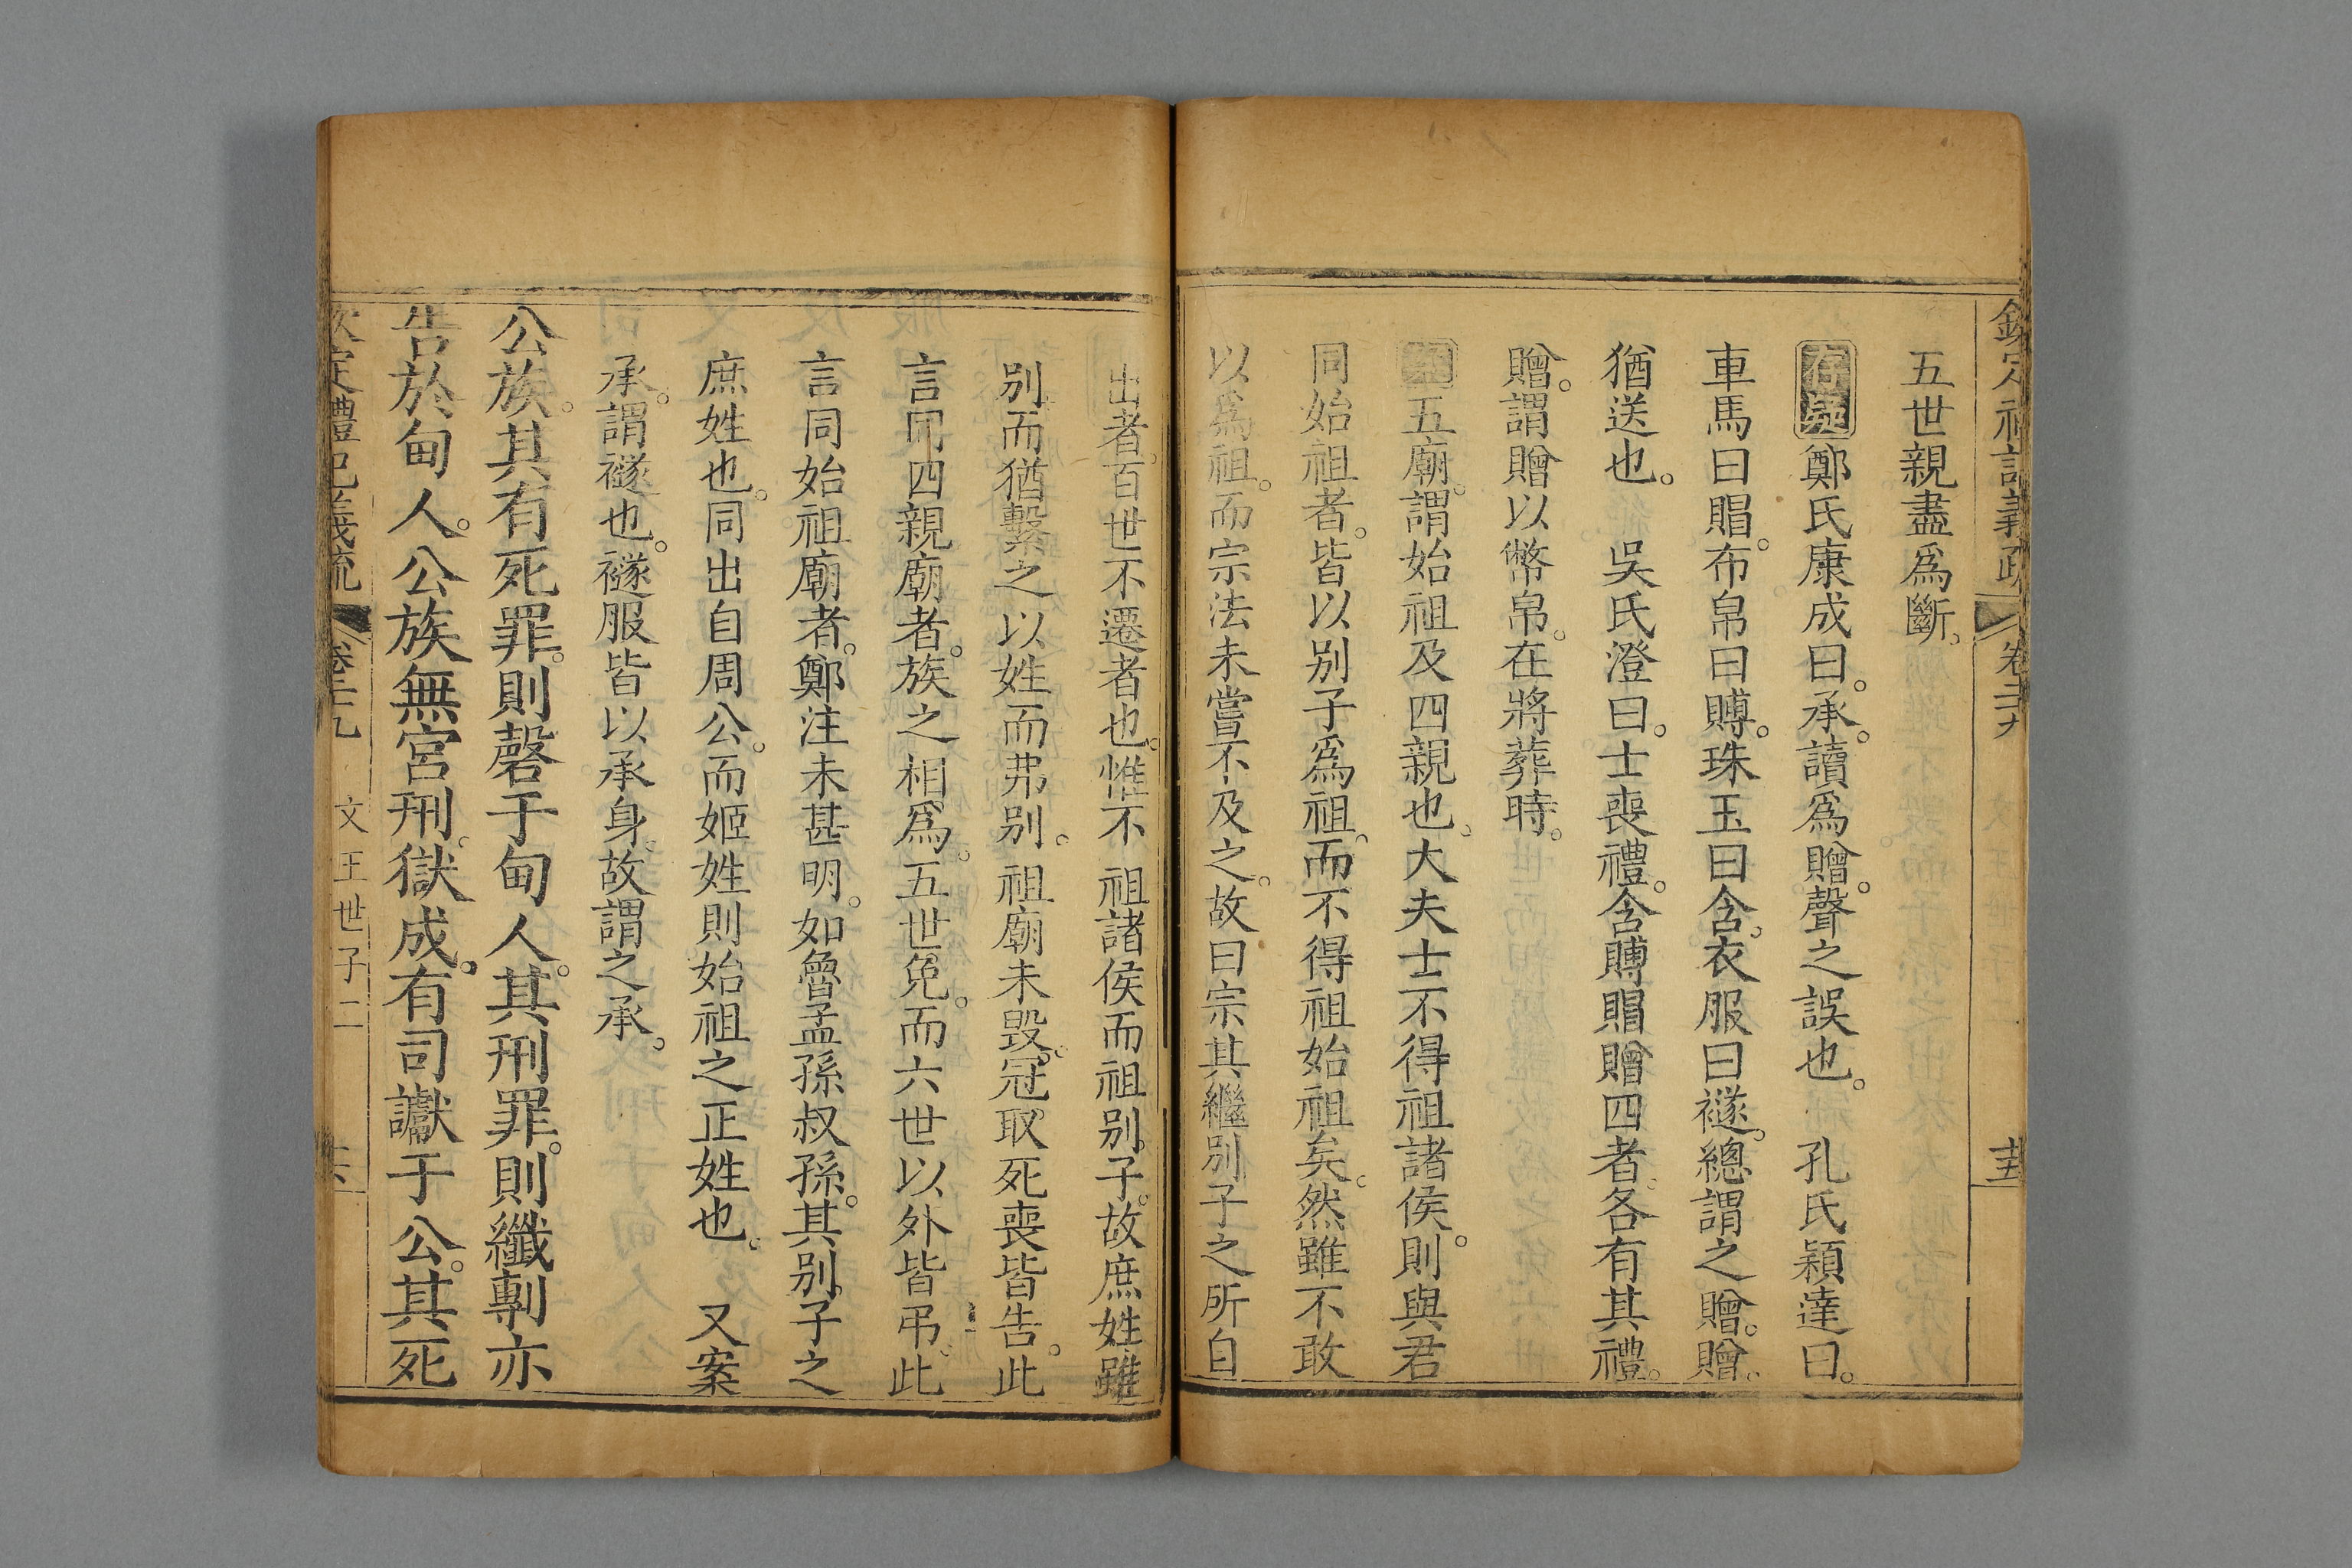 欽定禮記義疏 卷二十九
五世親盡爲斷。
存疑鄭氏康成曰。承。讀爲贈。聲之誤也。 孔氏穎達曰。
車馬曰賵。布帛曰賻。珠玉曰含。衣服曰襚。總謂之贈。贈。
猶送也。 吳氏澄曰。士喪禮。含賻賵贈四者。各有其禮。
贈。謂贈以幣帛。在將葬時。
五廟。謂始祖及四親也。大夫士不得祖諸侯。則與君
同始祖者。皆以別子爲祖。而不得祖始祖矣。然雖不敢
以爲祖。而宗法未嘗不及之。故曰宗其繼別子之所自
出者。百世不遷者也。惟不祖諸侯而祖別子。故庶姓雖
別。而猶繫之以姓而弗別。祖廟未毀。冠取死喪皆告。此
言同四親廟者。族之相爲。五世免。而六世以外皆弔。此
言同始祖廟者。鄭注未甚明。如魯孟孫叔孫。其別子之
庶姓也。同出自周公。而姬姓則始祖之正姓也。 又案
承。謂襚也。襚服皆以承身。故謂之承。
公族。其有死罪。則磬于甸人。其刑罪。則纖剸亦
告於甸人。公族無宮刑。獄成。有司讞于公。其死
欽定禮記義疏 卷二十九 文王世子二